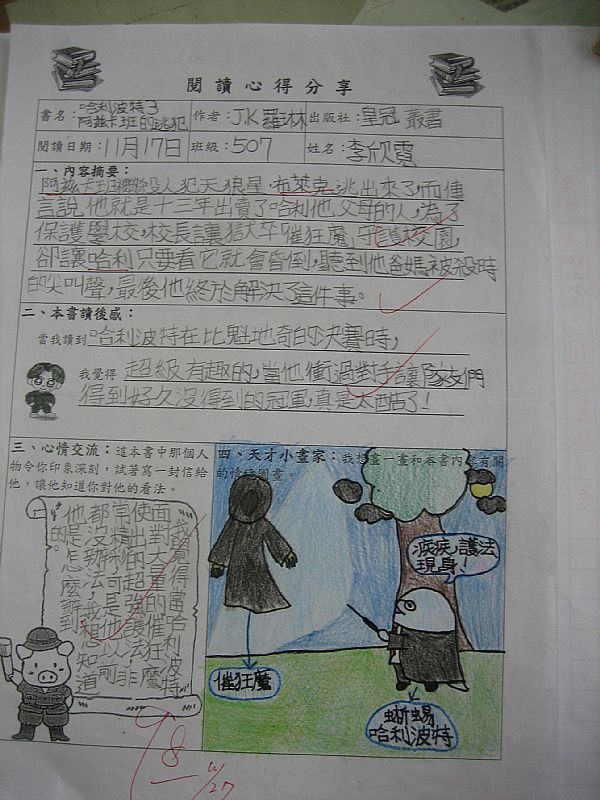 閱讀心得分享
書名：哈利波特3
阿茲卡班的逃犯
作者：J.K羅琳
出版社：皇冠叢書
閱讀日期：11月17日
班級：507
姓名：李欣霓
一、內容摘要：
阿茲卡班殺人犯天狼星．布萊克逃出來了，而傳
言說他就是十三年出賣了哈利他父母的人，為了
保護學校，校長讓獄卒催狂魔守護校園，
卻讓哈利只要看它就會昏倒，聽到他爸媽被殺時
的尖叫聲，最後他終於解決了這件事。
二、本書讀後感：
當我讀到哈利波特在比魁地奇的決賽時，
我覺得超級有趣的，當他衝過對手讓隊友們
得到好久沒得到的冠軍，真是太酷了！
三、心情交流：這本書中那個人
物令你印象深刻，試著寫一封信給
他，讓他知道你對他的看法。
我覺得當哈利波特
面對大量的催狂魔
使出的超強護法，非
常精彩，可是他以前
都沒辦法，我想知道
他是怎麼辦到
的。
四、天才小畫家：我想畫一畫和本書內容有關
的情境圖畫。
疾疾，護法
現身！
催狂魔
蜥蜴
哈利波特
98
11/27